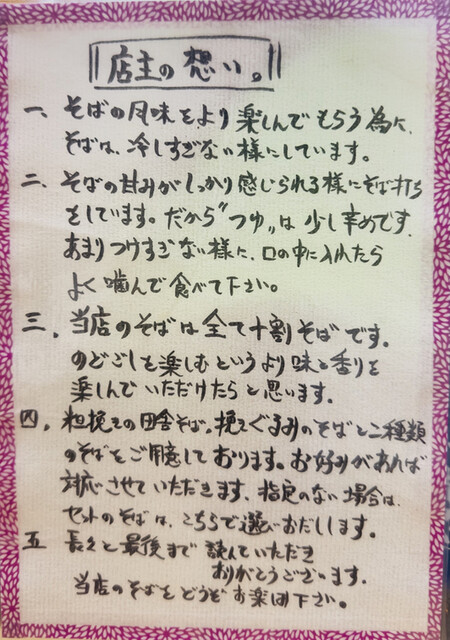 店主の想い。
一、そばの風味をより楽しんでもらう為に、
そばは、冷しすぎない様にしています。
二、そばの甘みがしっかり感じられる様にそば打ち
をしています。だから"つゆ"は少し辛めです。
あまりつけすぎない様に、口の中に入れたら
よく噛んで食べて下さい。
三、当店のそばは全て十割そばです。
のどごしを楽しむというより味と香りを
楽しんでいただけたらと思います。
四、粗挽きの田舎そば、挽きぐるみのそばと二種類
のそばをご用意しております。お好みがあれば
対応させていただきます、指定のない場合は、
セットのそばは、こちらで選いおだしします。
五 長々と最後まで読んでいただき
ありがとうございます。
当店のそばをどうぞお楽しみ下さい。